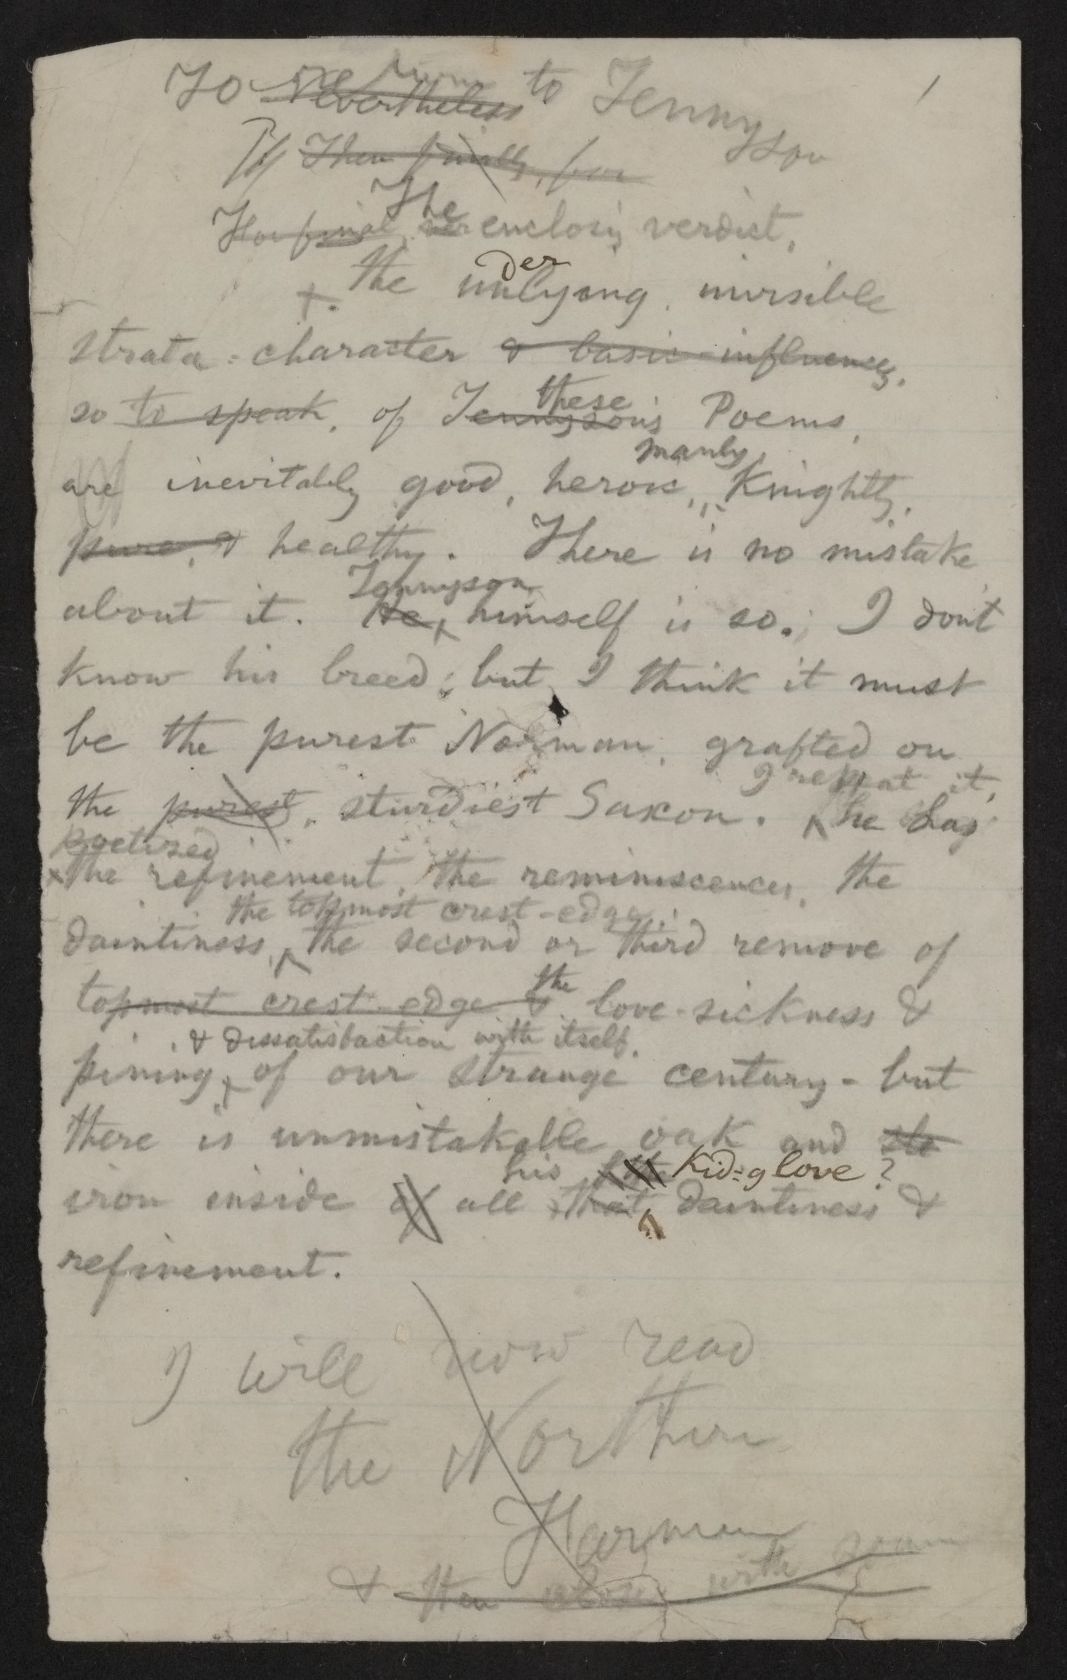 To Nevertheless to Tennyson
1
¶ Then finally, for
The
For final, enclosing verdict,
der
the unlying invisible
strata-character & basic influences,
so to speak, of Tennyson's Poems,
these
manly,
are inevitably good, heroic, Knightly,
pure, & healthy. There is no mistake
Tennyson
about it. He, himself is so. ; I don't
know his breed; but I think it must
be the purest Norman, grafted on
I repeat it,
the purest, sturdiest Saxon. he has
poetized
the refinement, the reminiscences, the
the topmost crest-edge
daintiness, the second or third remove of
topmost crest-edge & the love-sickness &
& dissatisfaction with itself,
pining, of our strange century - but
there is unmistakable oak and
his Kid-glove?
iron inside of all that daintiness &
refinement.
I will now read
the Northern
Farmer
& then close with